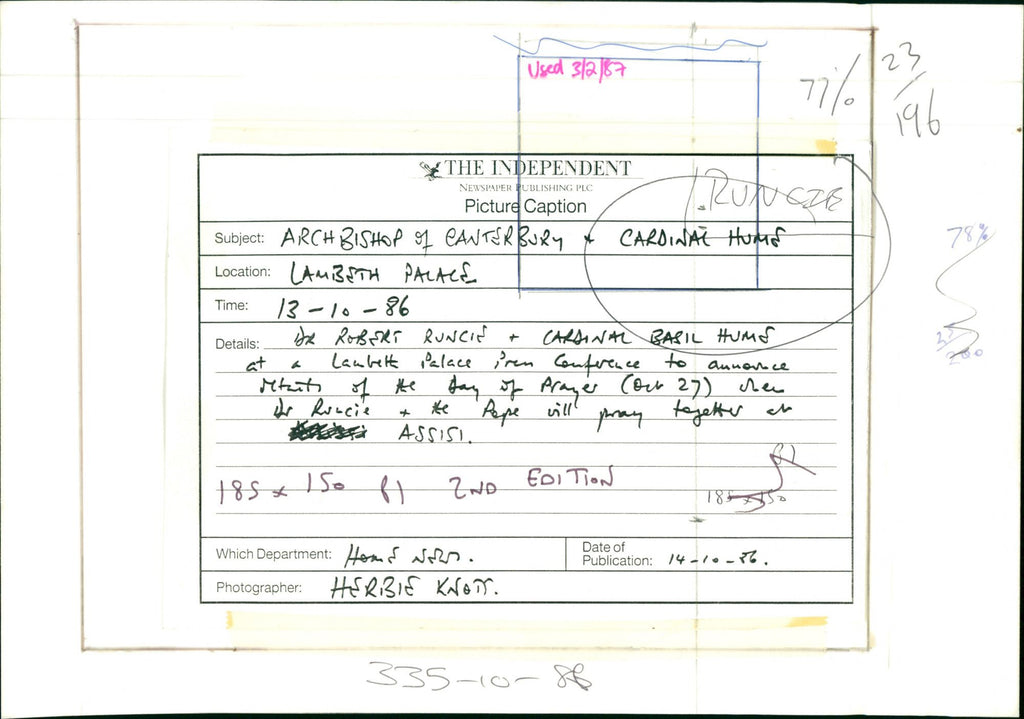 Used 3/2/87
77%
23
196
THE INDEPENDENT
NEWSPAPER PUBLISHING PLC
Picture Caption
RUNCIE
Subject: ARCHBISHOP of CANTERBURY + CARDINAL HUME
Location: LAMBETH PALACE
Time: 13-10-86
Details: DR ROBERT RUNCIE + CARDINAL BASIL HUME
at a Lambeth Palace Press Conference to announce
details of the Day of Prayer (Oct 27) when
Dr Runcie + the Pope will pray together at
ASSISI.
78%
200
185 x 150 P1 2ND EDITION
P1
185 x 150
Which Department: HOME NEWS.
Date of
Publication: 14-10-86.
Photographer: HERBIE KNOTT.
335-10-86